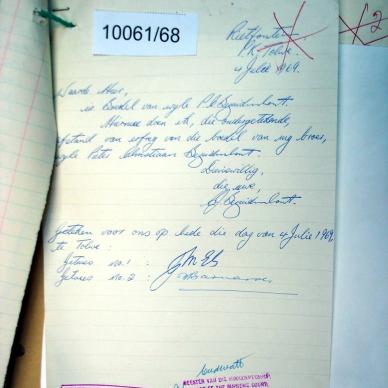 10061/68
2
Rietfontein
P.K. Tolwe.
4 Julie 1969.
Waarde Heer,
i.e. Boedel van wyle P C Bezuidenhout.
Hiermee doen ek, die ondergetekende,
afstand van erfreg van die boedel van my broer,
wyle Pieter Christiaan Bezuidenhout.
Dienswillig,
die uwe,
Bezuidenhout.
Geteken voor ons op hede die dag van 4 Julie 1969
te Tolwe:
Getuie no. 1 :
Getuies no. 2 :
MEESTER VAN DIE HOOGGEREGSHOF
OF THE SUPREME COURT